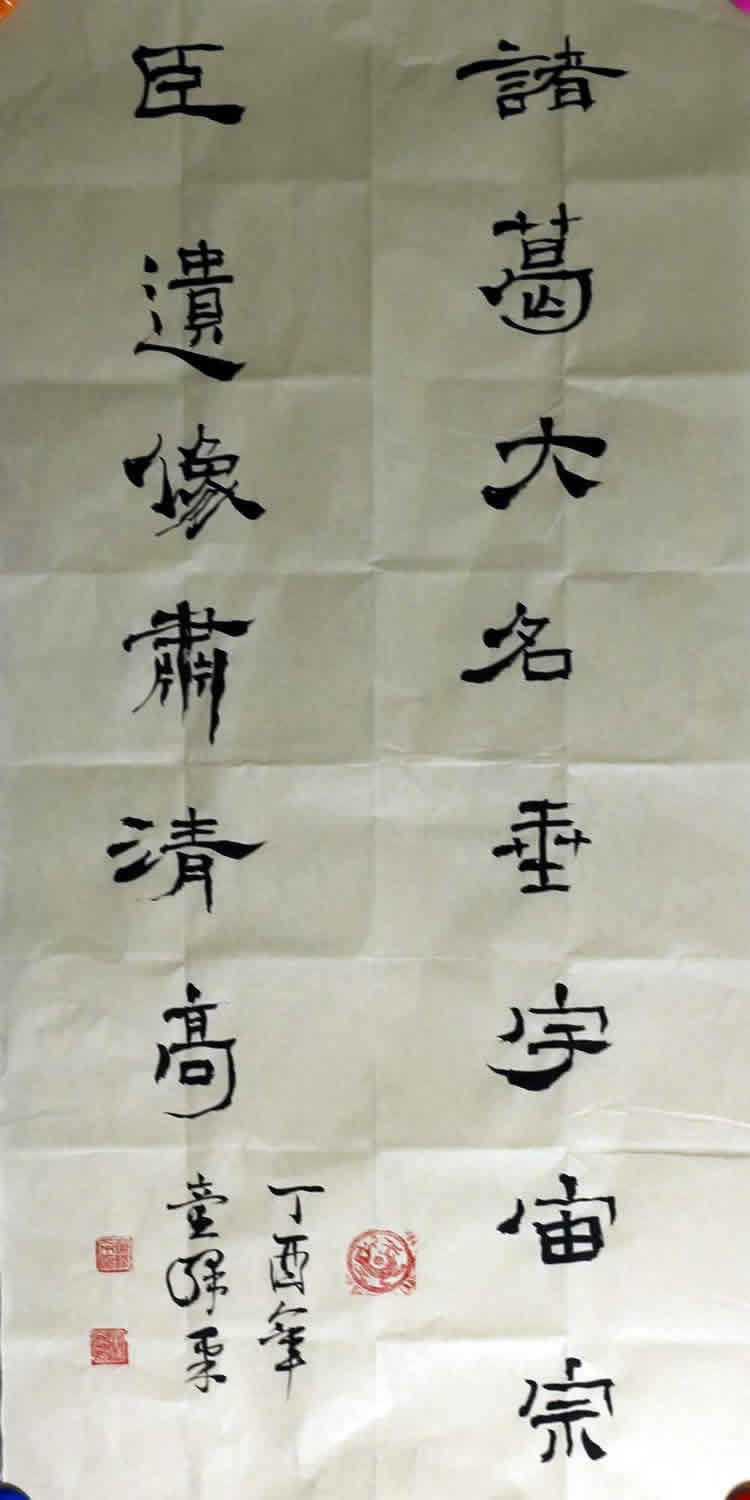 諸葛大名垂宇宙宗
臣遺像肅清高
丁酉年
童